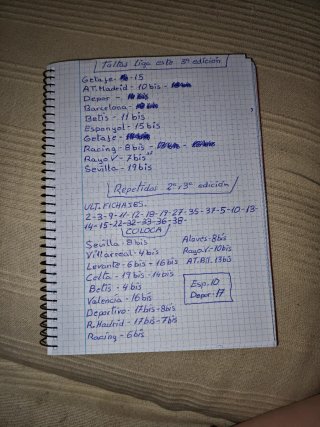 Faltas Liga este 3ª edición
Getafe - 15
AT. Madrid - 10bis -
Depor -
Barcelona -
Betis - 11 bis
Espanyol - 15 bis
Getafe -
Racing - 8 bis -
Rayo V - 7 bis
Sevilla - 19 bis
Repetidos 2ª y 3ª edición
ULT. FICHAJES.
2-3-9-11-12-18-19-27-35-37-5-10-13-
14-15-22-32-33-36-38-
COLOCA
Sevilla - 8 bis
Villarreal - 4 bis
Levante - 6 bis + 16 bis
Celta - 19 bis - 14 bis
Betis - 4 bis
Valencia - 16 bis
Deportivo - 17 bis - 8 bis
R. Madrid - 17 bis - 7 bis
Racing - 6 bis
Alaves - 8 bis
Rayo V. - 10 bis
AT. Bil. 13 bis
Esp. 10
Depor - 17